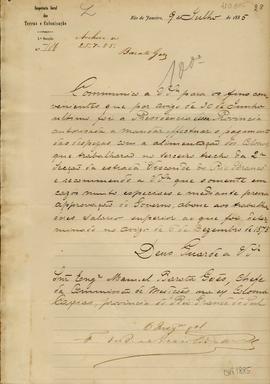 Inspectoria Geral
das
Terras e Colonização
Rio de Janeiro, 9 de Julho de 1885
Archive-se
25-7-85.
Barata Góes
Communico a V.Sª para os fins con-
venientes que por aviso de 30 de Junho
ultimo, foi a Presidencia Provincia
autorisada a mandar effectuar o pagamento
das despezas com a alimentação dos Colonos
que trabalharão no terceiro trecho da 2ª
secção da estrada Visconde do Rio Branco
e recommendo a V.Sª que somente em
casos muito especiaes e mediante previa
approvação do Governo, abone aos trabalha-
dores salario superior ao que foi deter-
minado no aviso de 6 de Dezembro de 1878
Deus Guarde a V.Sª
Snr. Engº Manuel Barata Góes, Chefe
da Commissão de Medição na ex Colonia
Caxias, provincia do Rio Grande do Sul
O Insp. geral